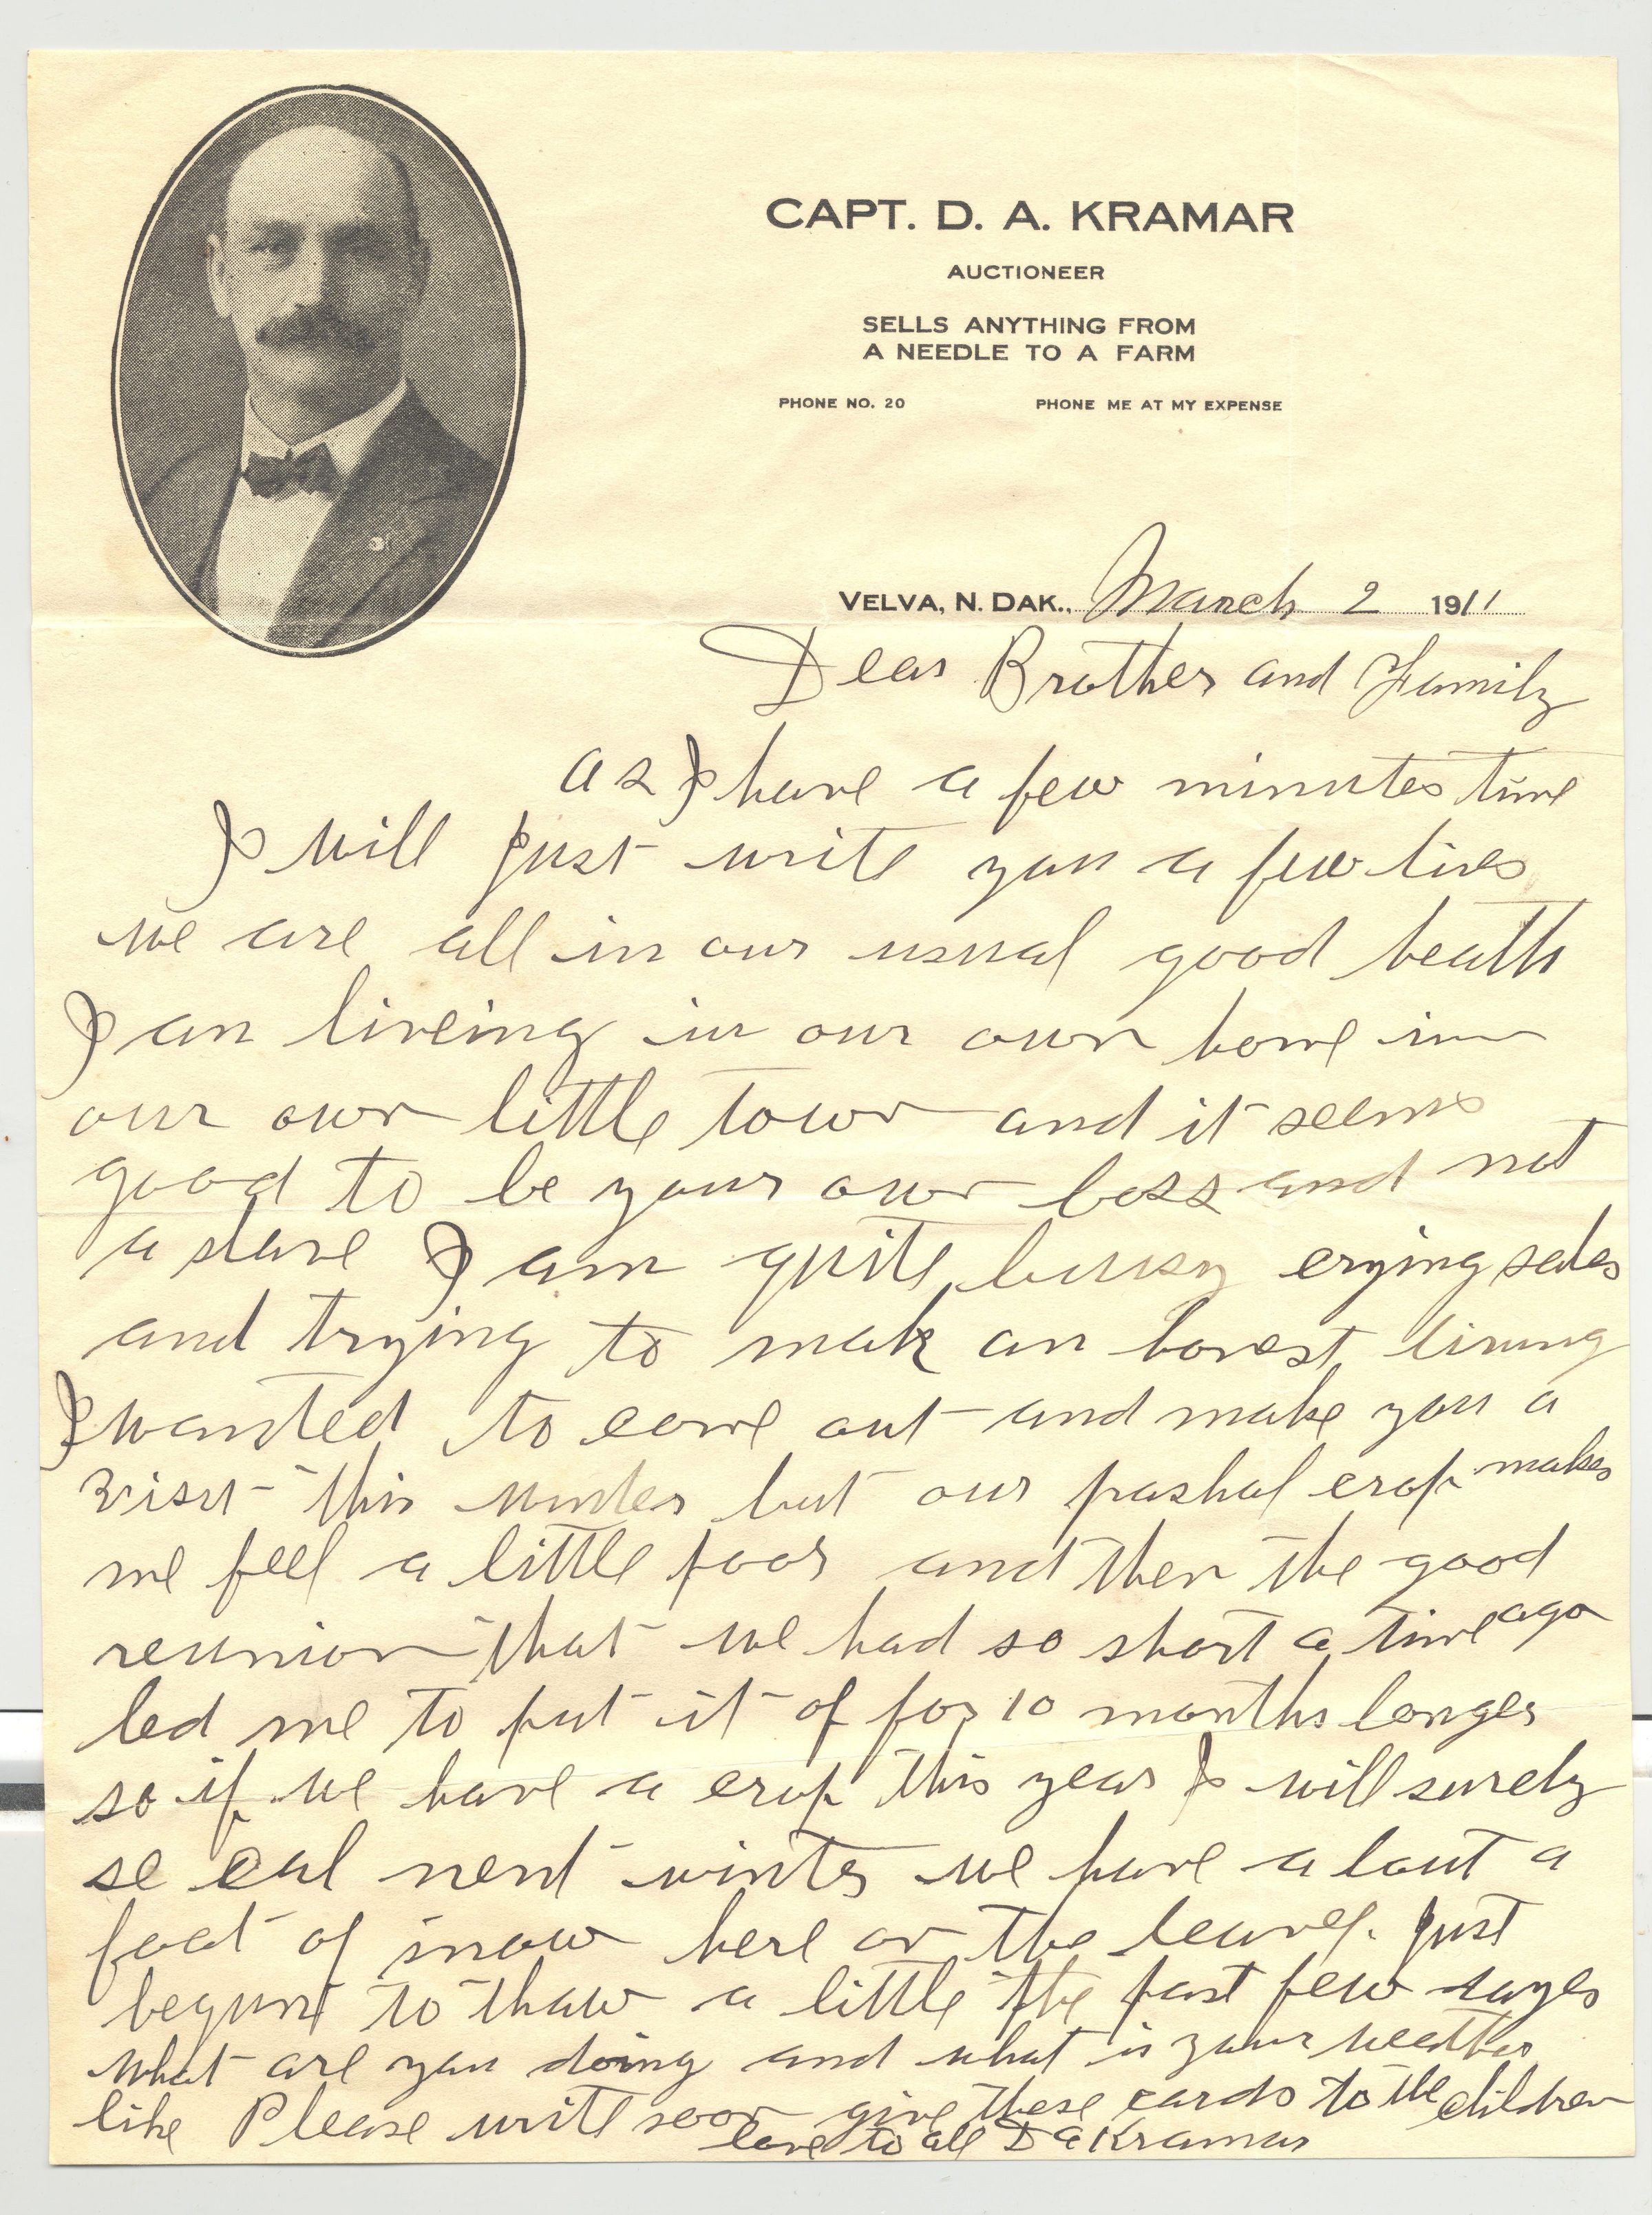 CAPT. D. A. KRAMAR
AUCTIONEER
SELLS ANYTHING FROM
A NEEDLE TO A FARM
PHONE NO. 20 PHONE ME AT MY EXPENSE
VELVA, N. DAK., March 2 1911
Dear Brother and Family
as I have a few minutes time
I will just write you a few lines
we are all in our usual good health
I am liveing in our own home in
our own little town and it seems
good to be your own boss and not
a slave I am quite buisy crying sales
and trying to mak an honest living
I wanted to come out and make you a
visit this winter but our pashal crop makes
me feel a little poor and then the good
reunion that we had so short a time ago
led me to put it of for 10 months longer
so if we have a crop this year I will surely
se Cal next winter we have about a
foot of snow here on the level. Just
begun to thaw a little the past few dayes
what are you doing and what is your weather
like Please write soon give these cards to the children
love to all D A Kramar